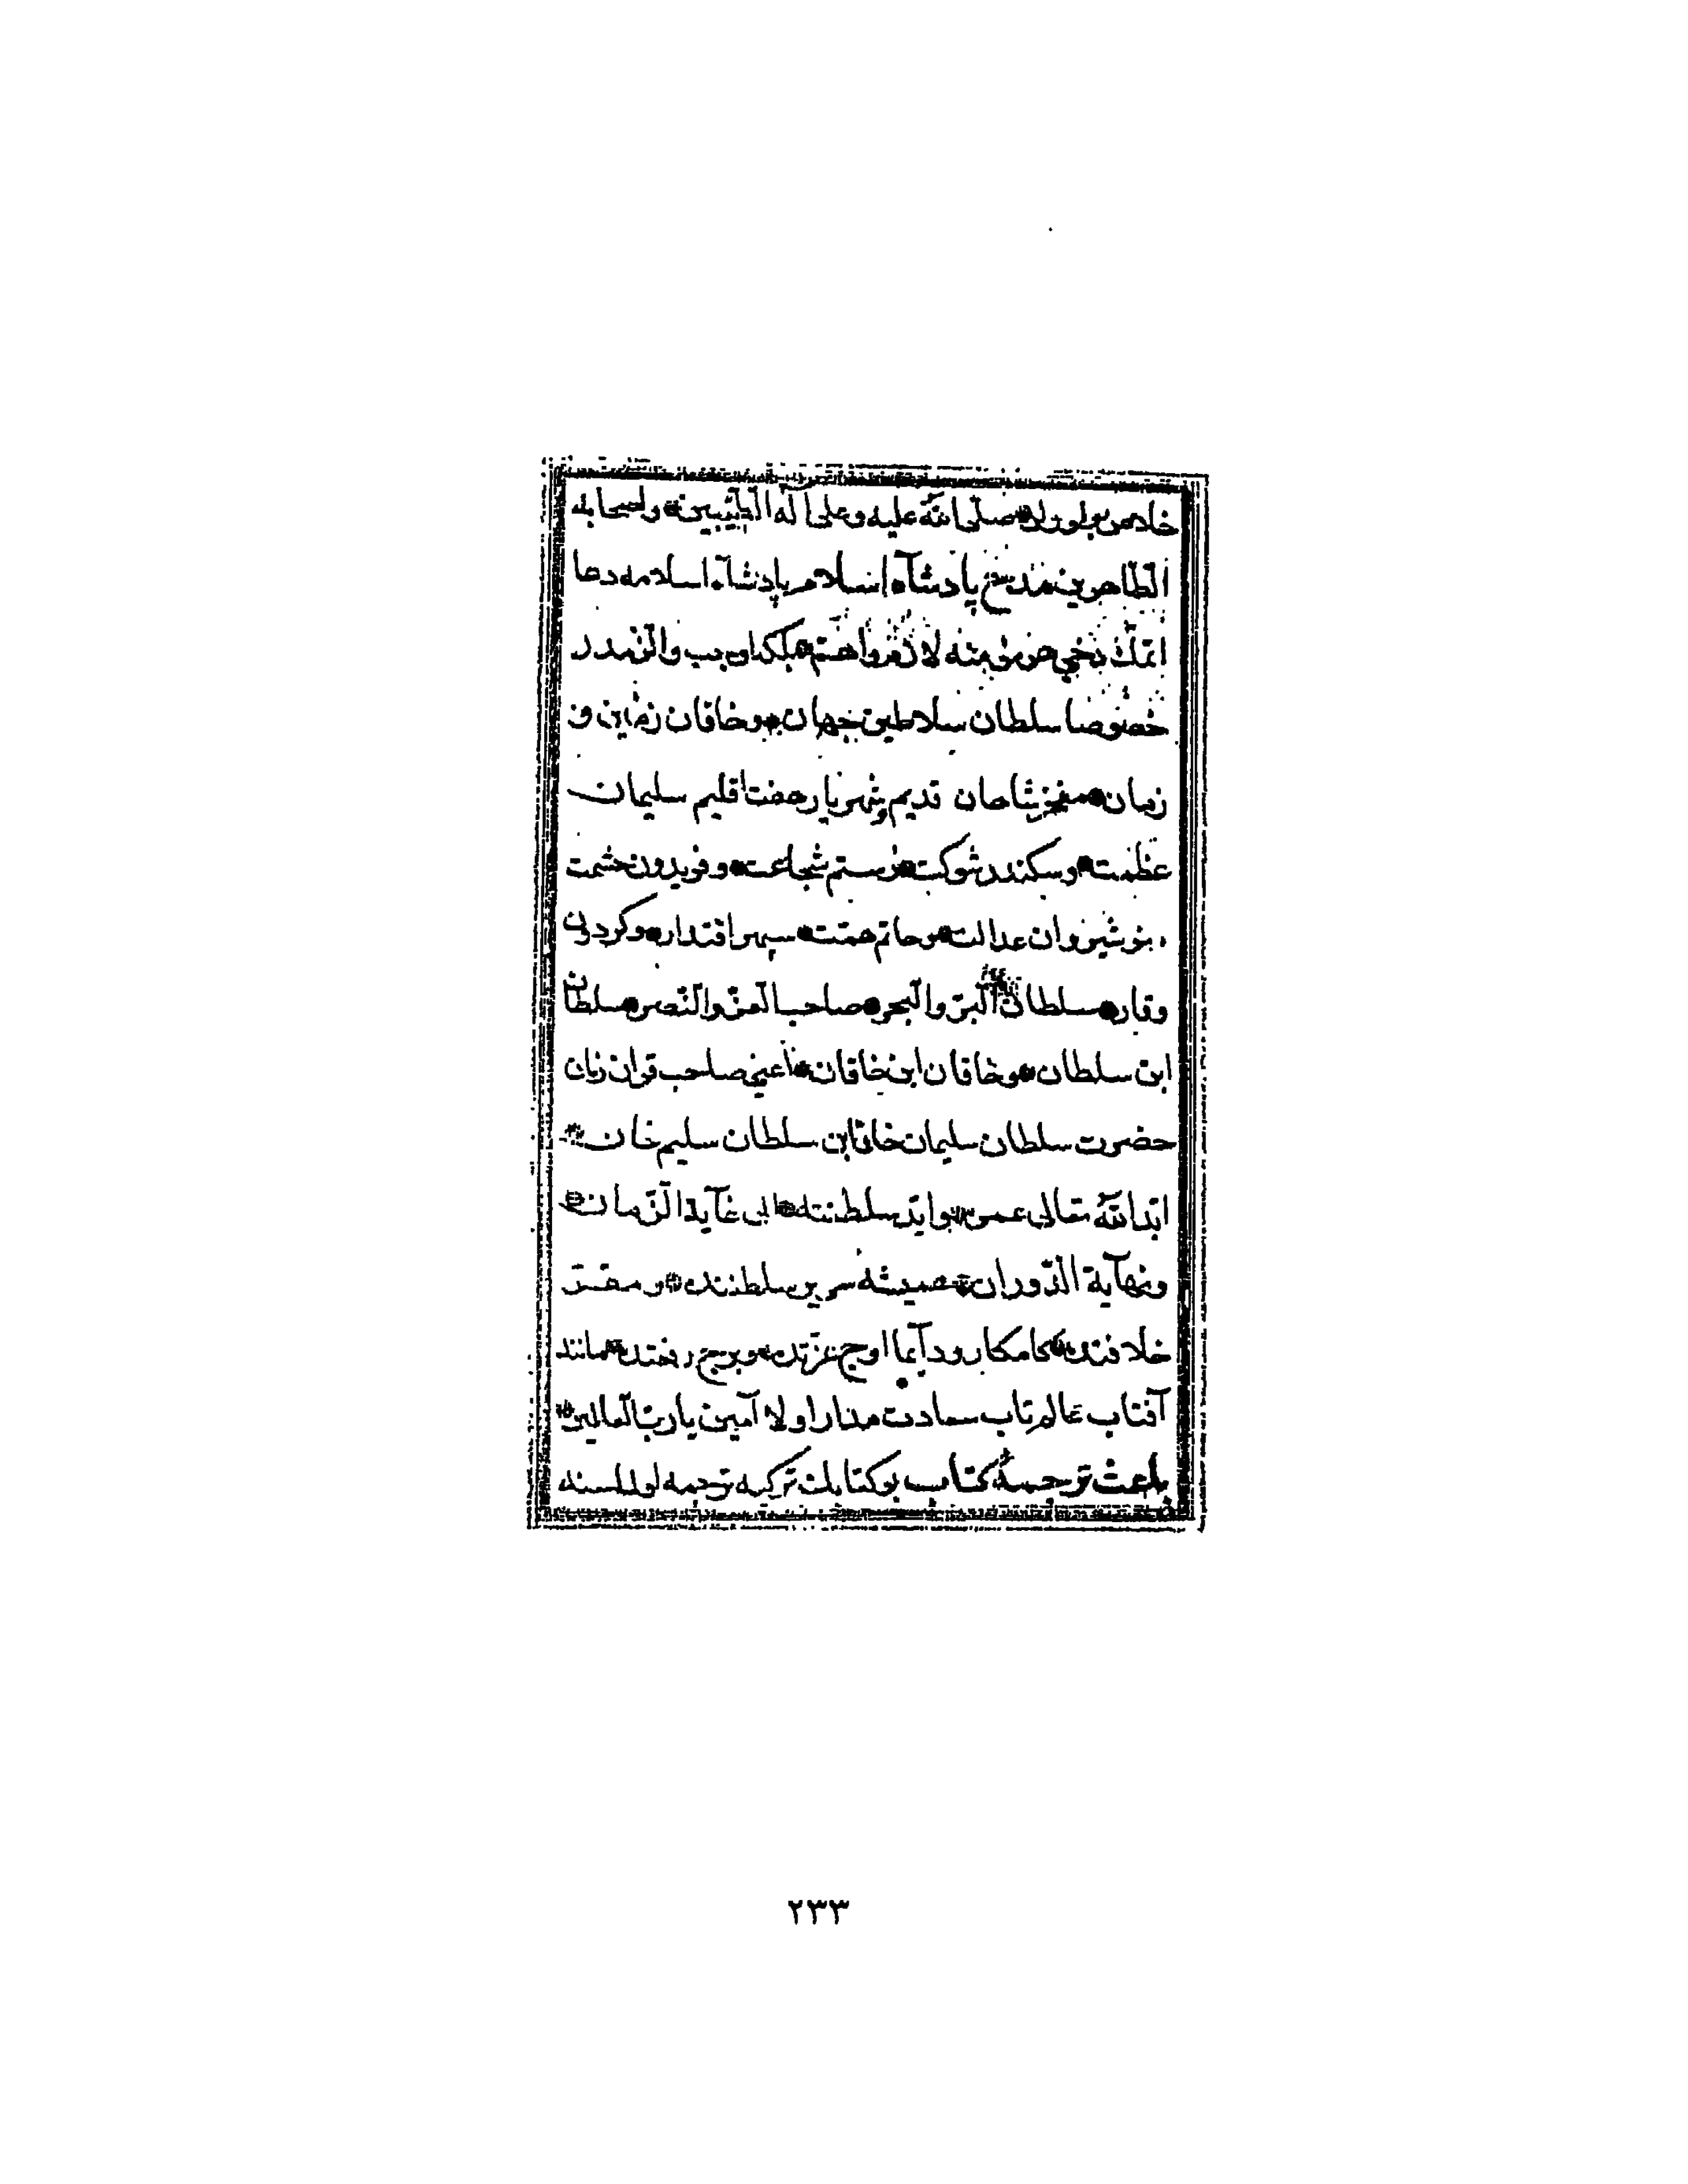 خلاص بولورلر صلّى الله عليه وعلى آله الطّيّبين واصحابه
الطّاهرين مدح پادشاه اسلام پادشاه اسلامه دعا
اتمك دخي هر مؤمنه لازم بلكه واجب والزمدر
خصوصا سلطان سلاطين جهان وخاقان زمين و
زمان مفخر شاهان قديم وشهريار هفت اقليم سليمان
عظمت وسكندر شوكت رستم شجاعت وفريدون حشمت
نوشيروان عدالت وحاتم همّت سپهر اقتدار وكردون
وقار سلطان البرّ والبحر صاحب العزّ والنّصر سلطان
ابن سلطان وخاقان ابن خاقان اعني صاحب قران زمان
حضرت سلطان سليمان خان ابن سلطان سليم خان
ابد الله تعالى عمره وابّد سلطنته الى غآية الزّمان
ونهآية الدّوران هميشه سرير سلطنتده ومقرّ
خلافتده كامكار ودآيما اوج عزّتده وبرج رفعتده مانند
آفتاب عالم تاب سعادت مدار اولا آمين يا ربّ العالمين
باعث ترجمهٔ كتاب بو كتابك تركيه ترجمه اولماسنه
٢٣٣